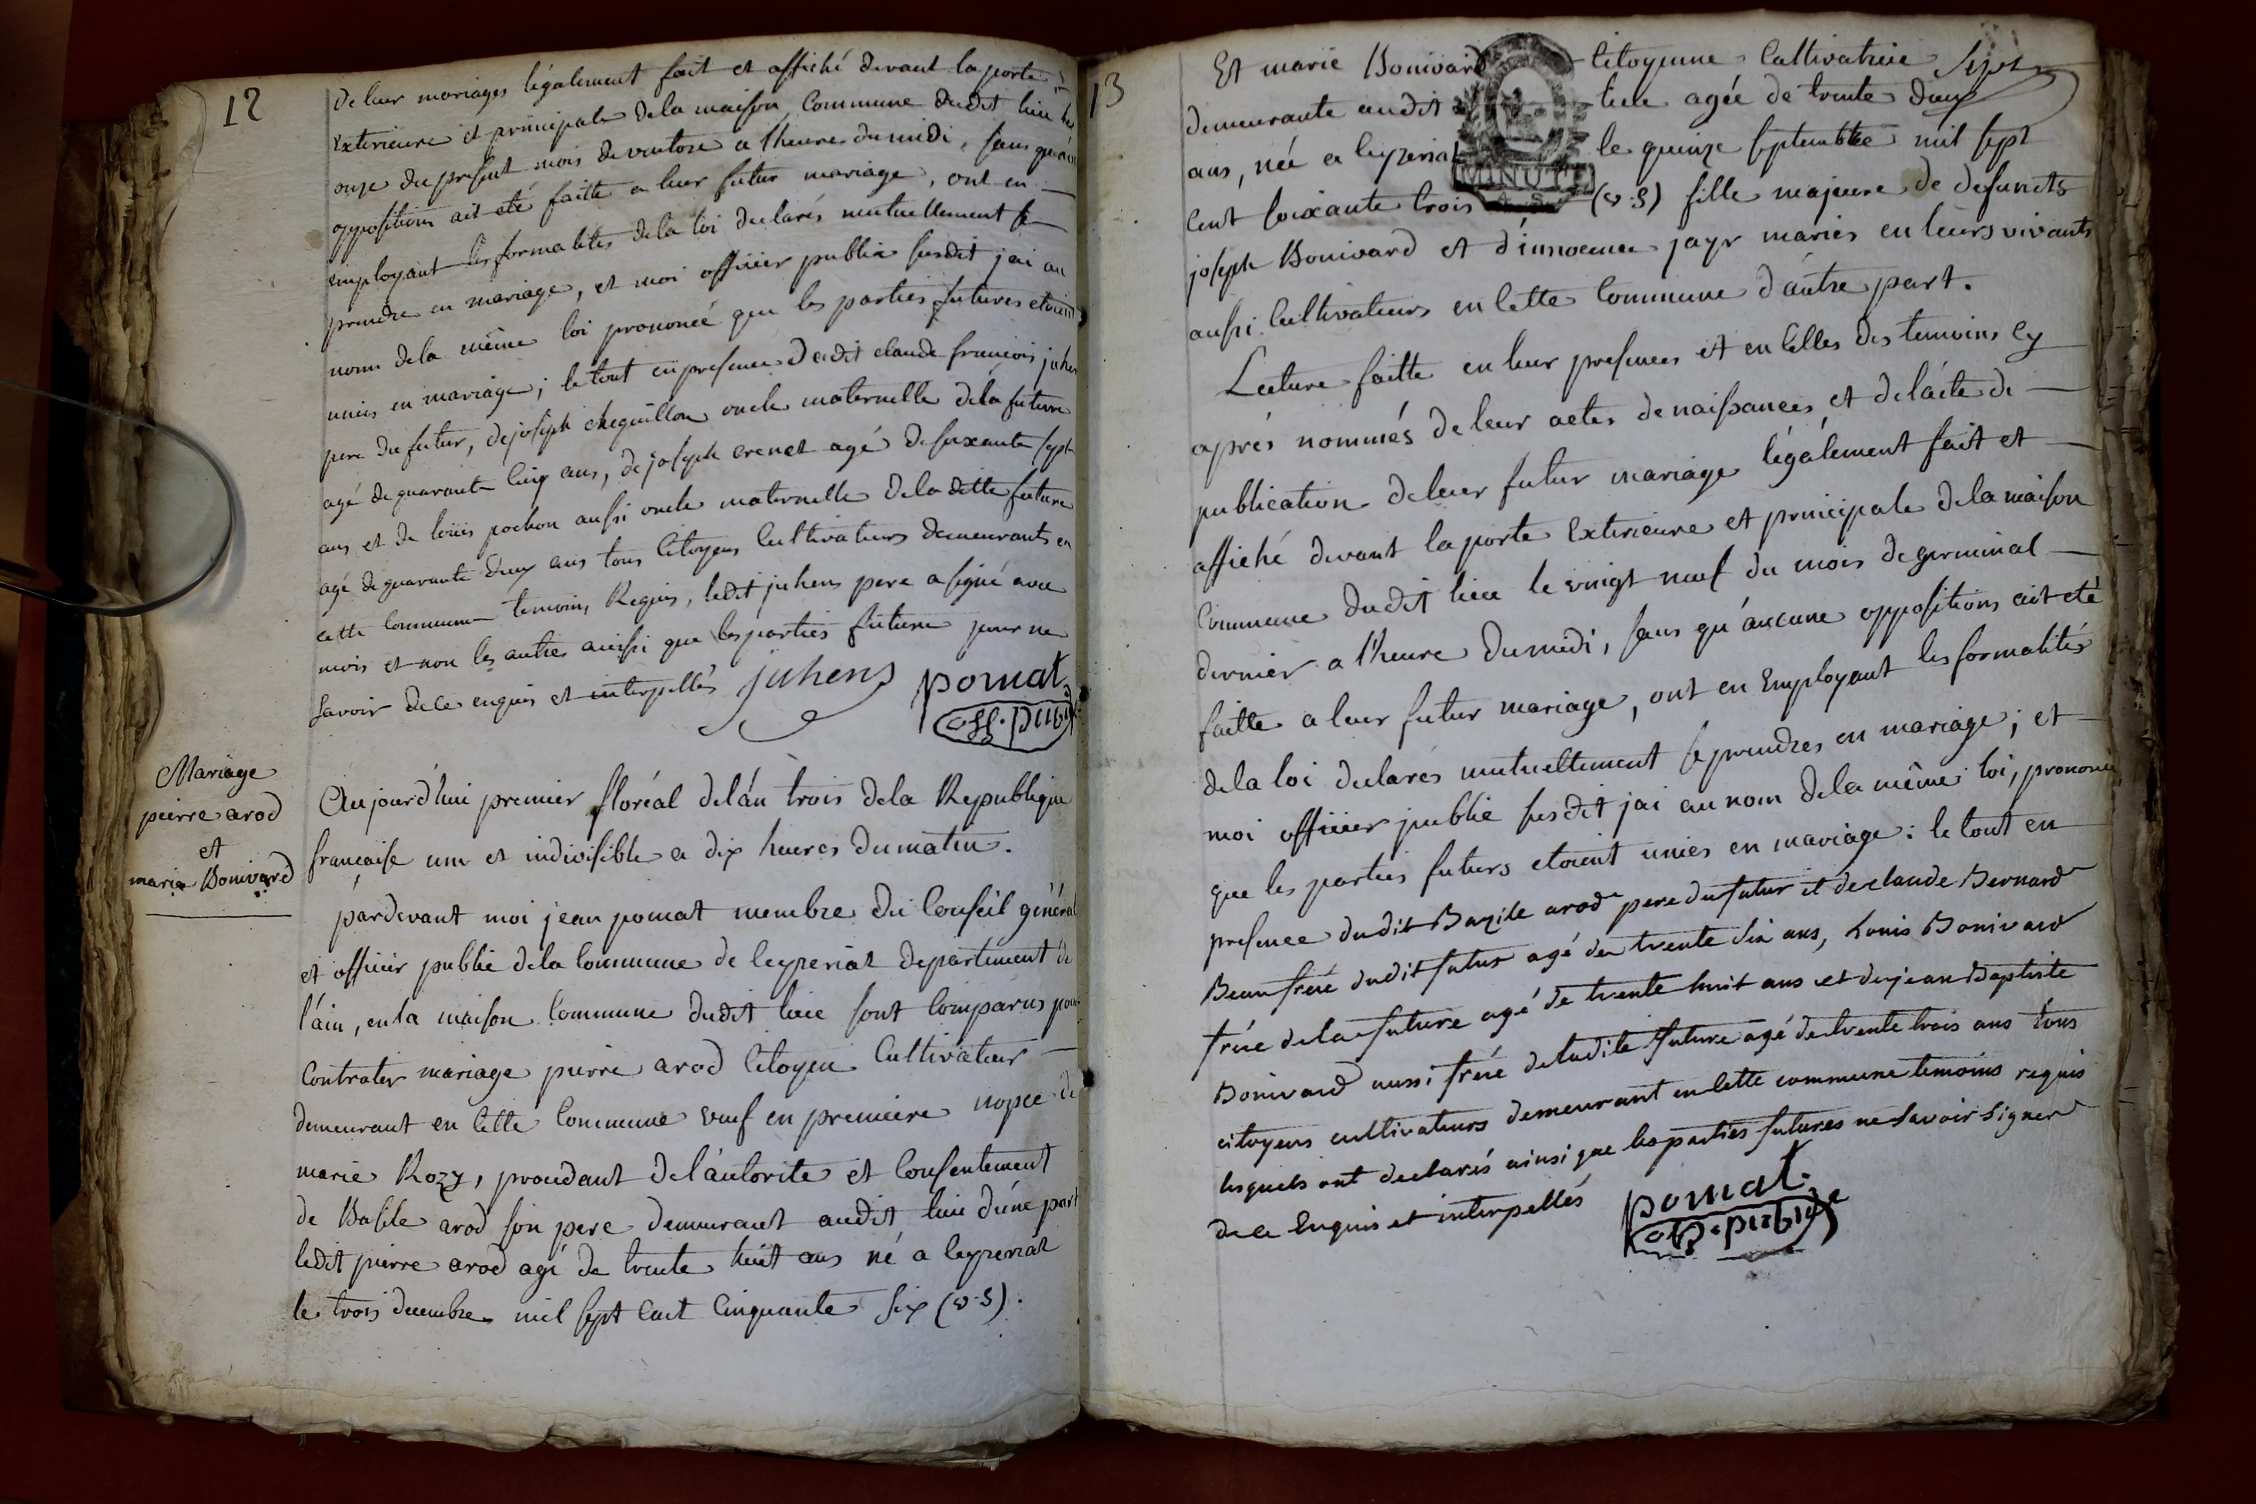 12
de leur mariages légalement fait et affiché devant la porte
Exterieure et principale de la maison Commune dudit lieu le
onze du present mois de ventose a l'heure du midi, sans qu'aucune
oppositions ait eté faitte a leur futur mariage, ont en
employant les formalités de la loi declarés mutuellement se
prendre en mariage, et moi officier public susdit jai au
nom de la même loi prononcé que les parties futures etoient
unies en mariage; le tout en presence dudit claude françois juhens
pere du futur, de joseph cheguillon oncle maternelle de la future
agé de quarante cinq ans, de joseph crenet agé de soixante sept
ans et de loüis pochon aussi oncle maternelle de la ditte future
agé de quarante deux ans tous Citoyens Cultivateurs demeurants en
cette Commune temoins Requis, ledit juhens pere a signé avec
mois et non les autres ainssi que les parties future pour ne
savoir de ce enquis et interpellés juhens pomat
off. public
Mariage
pierre arod
et
marie Bonivard
Aujourd'hui premier floréal de l'án trois de la Republique
française une et indivisible a dix heures du matin.
pardevant moi jean pomat membre du Conseil général
et officier public de la Commune de leyzeriat departement de
l'áin, en la maison Commune dudit lieu sont Comparus pour
Contrater mariage pierre arod Citoyen Cultivateur
demeurant en Cette Commune veuf en premiere nopce de
marie Rozy, procedant de l'áutorite et Consentement
de Basile arod son pere demeurant audit lieu d'úne part
ledit pierre arod agé de trente huit ans né a leyzeriat
le trois decembre mil sept Cent Cinquante six (v.s).
13
Et marie Bonivard Citoyenne Cultivatrice
demeurante audit lieu agée de trente deux
ans, née a leyzeriat le quinze septembre mil sept
MINUTE
Cent soixante trois (v.s) fille majeure de defuncts
joseph Bonivard et d'innocence jayr mariés en leurs vivants
aussi Cultivateurs en Cette Commune d'áutre part.
Lecture faitte en leur presences et en Celles des temoins Cy
aprés nommés de leur actes de naissances et de l'ácte de
publication de leur futur mariage légálement fait et
affiché devant la porte Exterieure et principale de la maison
Commune dudit lieu le vingt neuf du mois de germinal
dernier a l'heure du midi, sans qu'áucune oppositions ait eté
faitte a leur futur mariage, ont en Employant les formalités
de la loi declarés mutuellement se prendres en mariage; et
moi officier public susdit jai au nom de la même loi, prononcé
que les parties futurs etoient unies en mariage: le tout en
presence dudit Bazile arod pere du futur et de claude Bernard
Beaufrére dudit futur agé de trente six ans, Louis Bonivard
frére de la future agé de trente huit ans et de jean Baptiste
Bonivard aussi frére de ladite future agé de trente trois ans tous
citoyens cultivateurs demeurant en Cette commune temoins requis
lesquels ont declarés ainsi que les parties futures ne savoir signer
de ce Enquis et interpellés pomat
off. public